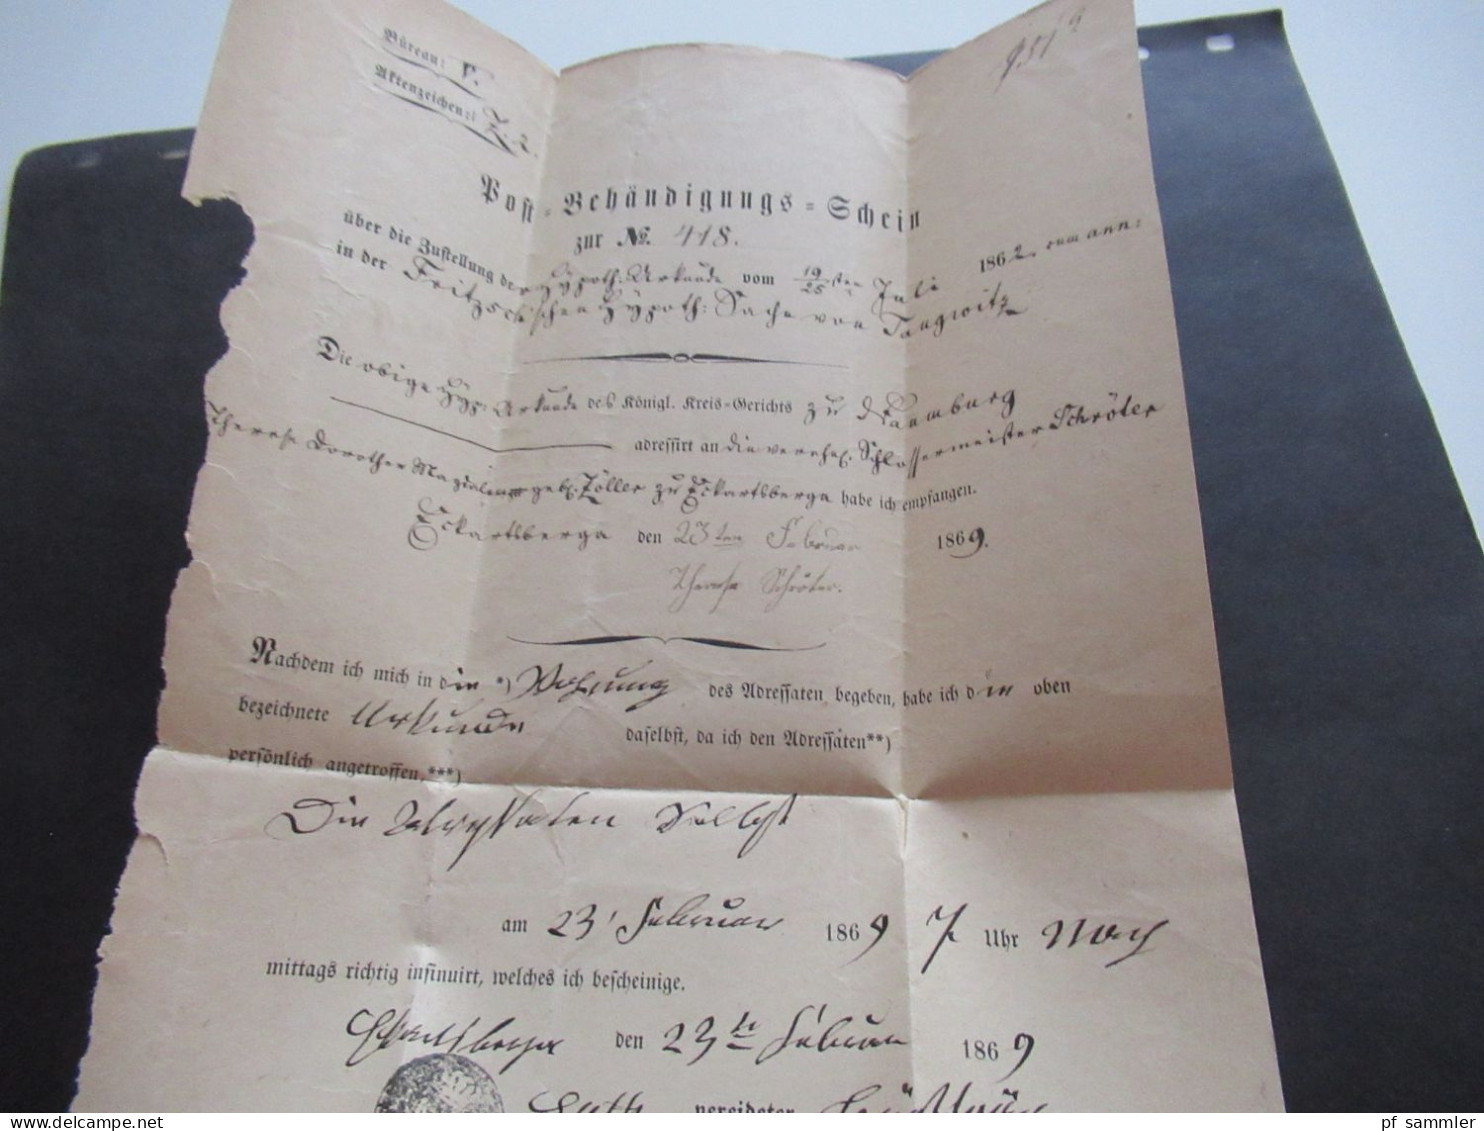 Büreau: V.
Aktenzeichen:
Post-Behändigungs-Schein
zur No. 418.
über die Zustellung der Hypoth: Urkunde vom 19/25sten Juli 1862
in der Fritzsche'schen Hypoth: Sache von Taugwitz
Die obige Hyp: Urkunde des Königl. Kreis-Gerichts zu Naumburg
adressirt an die verehel. Schlossermeister Schröter
Therese Dorothee geb. Zöller zu Eckartsberga habe ich empfangen.
Eckartsberga den 23ten Februar 1869.
Therese Schröter.
Nachdem ich mich in die *) Wohnung des Adressaten begeben, habe ich die oben
bezeichnete Urkunde daselbst, da ich den Adressaten**)
persönlich angetroffen,***)
Die Adressatin Selbst
am 23' Februar 1869 7 Uhr Nach
mittags richtig insinuirt, welches ich bescheinige.
Eckartsberga den 23ten Februar 1869
vereideter
pf_sammler